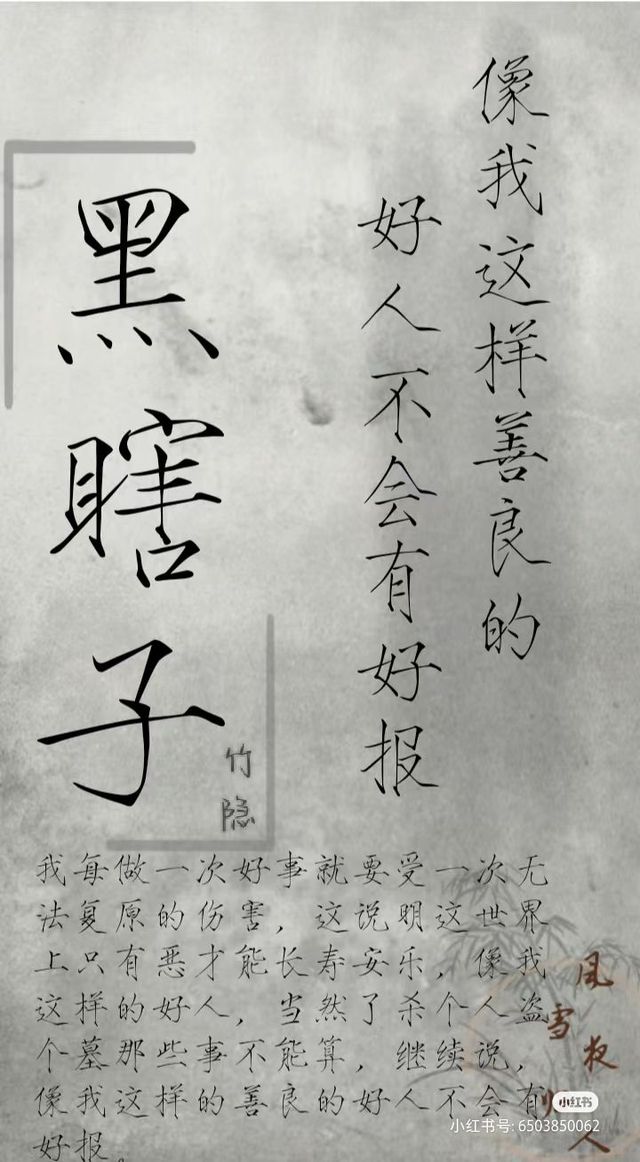 像我这样善良的
好人不会有好报
黑瞎子
竹隐
我每做一次好事就要受一次无
法复原的伤害，这说明这世界
上只有恶才能长寿安乐，像我
这样的好人，当然了杀个人盗
个墓那些事不能算，继续说，
像我这样的善良的好人不会有
好报。
风雪夜归人
小红书
小红书号: 6503850062